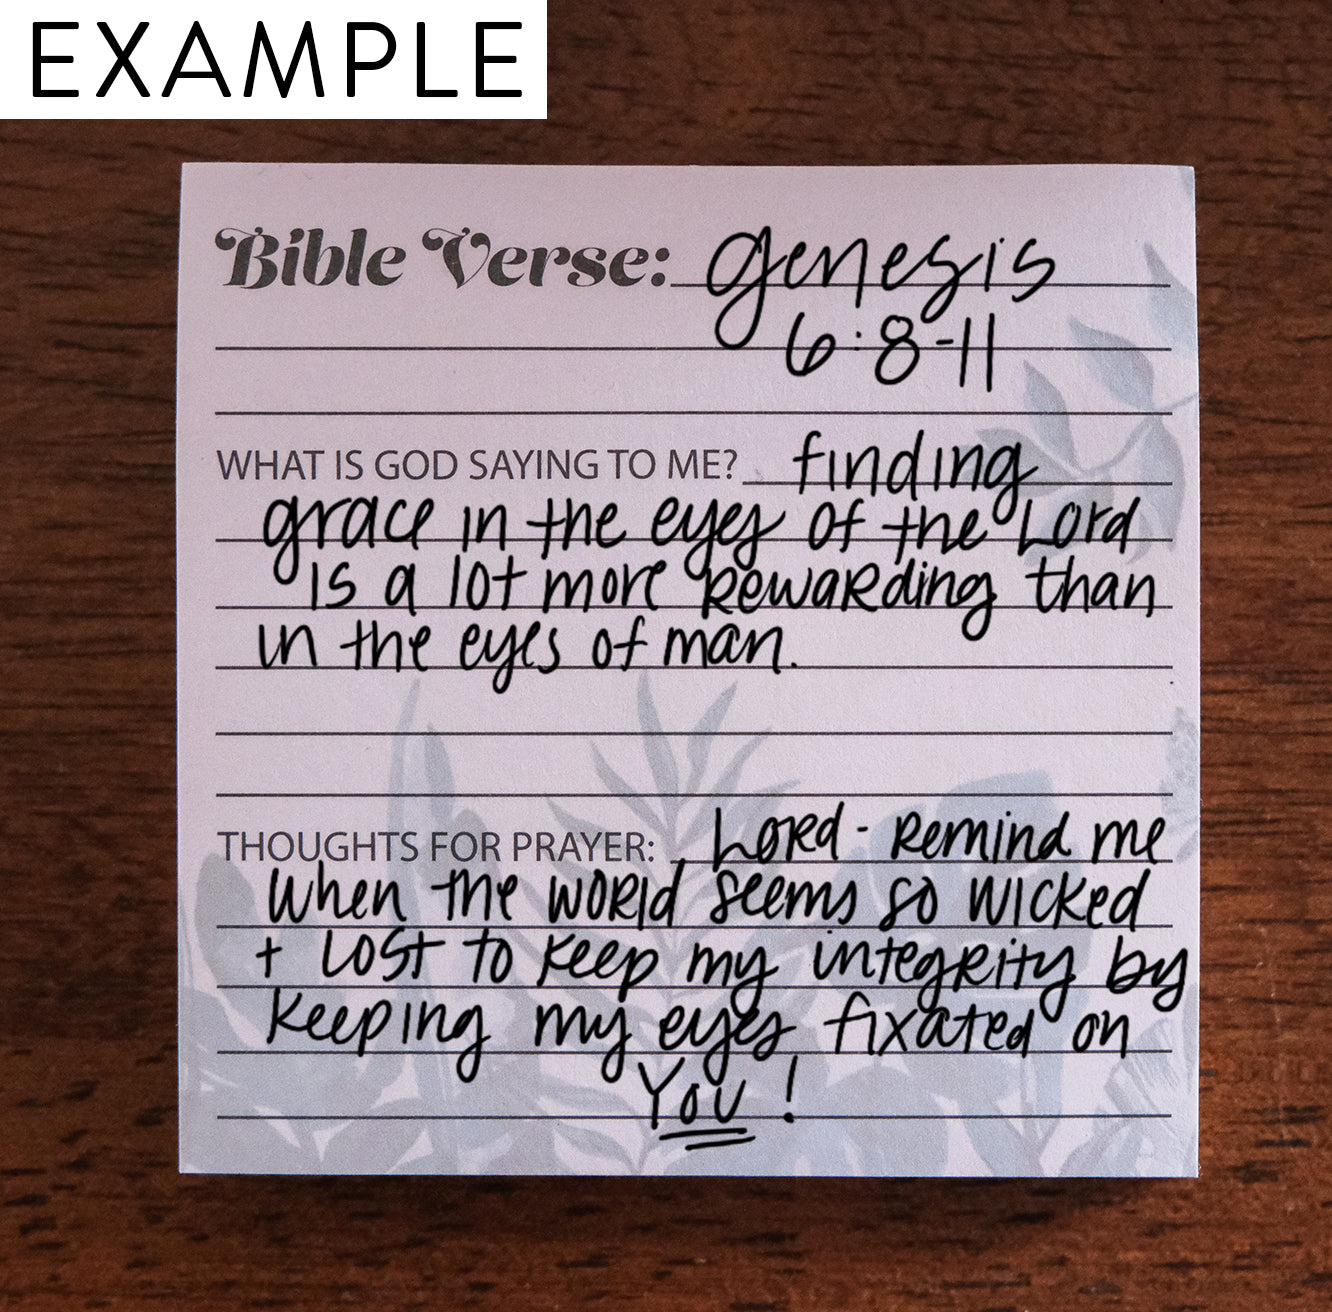 EXAMPLE
Bible Verse: genesis
6:8-11
WHAT IS GOD SAYING TO ME? finding
grace in the eyes of the Lord
is a lot more rewarding than
in the eyes of man.
THOUGHTS FOR PRAYER: Lord - remind me
when the world seems so wicked
+ lost to keep my integrity by
keeping my eyes fixated on
You!